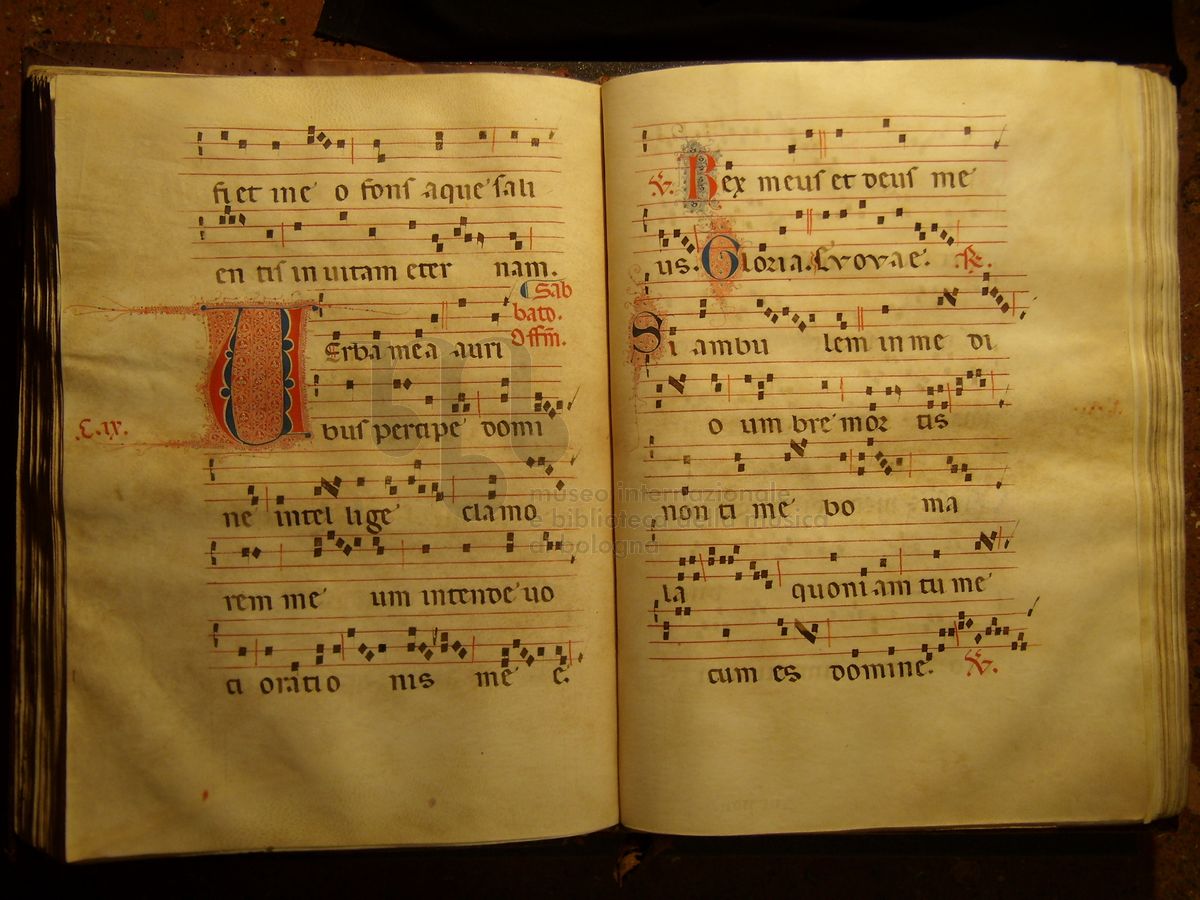 fi et me o fons aque sali
en tis in uitam eter nam.
Sab
bato.
Offm.
UErba mea auri
bus percipe domi
C. ix.
ne intel lige clamo
rem me um intende uo
ci oratio nis me e.
V. Rex meus et deus me
us. Gloria. Evovae. R.
Si ambu lem in me di
o um bre mor tis
non ti me bo ma
la quoni am tu me
cum es domine. V.
museo internazionale
e biblioteca della musica
di bologna